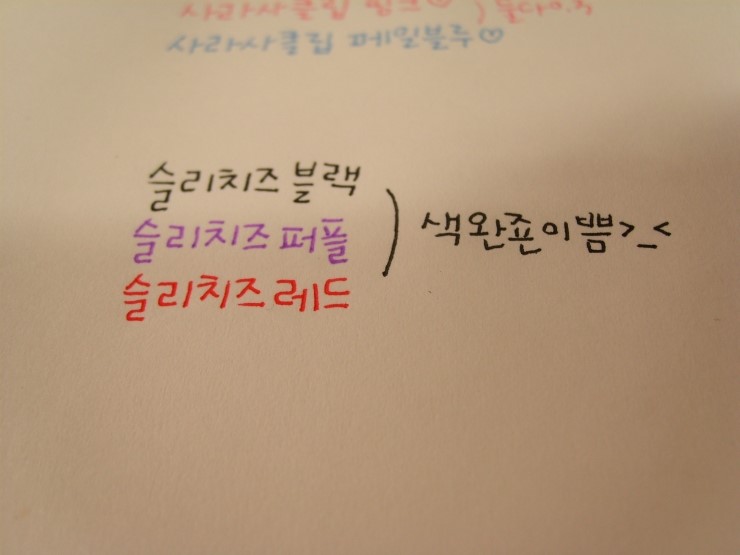 사라사클립 핑크♡ ) 둘다0.3
사라사클립 페일블루♡
슬리치즈 블랙
슬리치즈 퍼플 ) 색완죤이쁨>_<
슬리치즈 레드